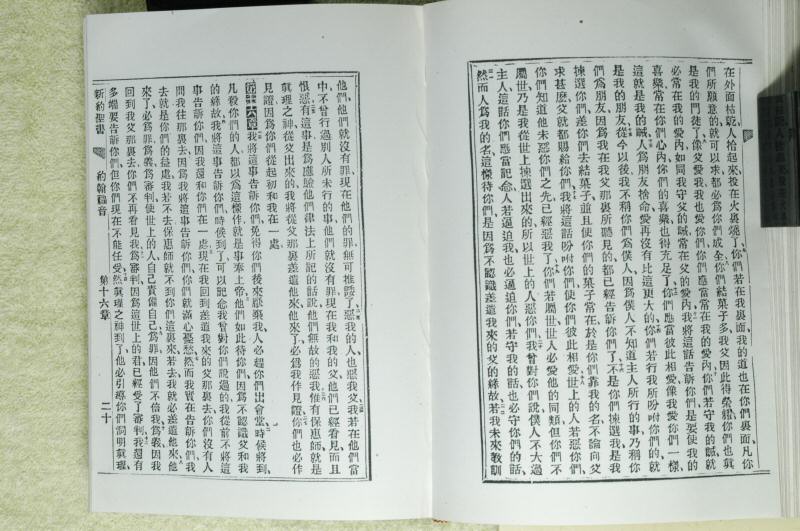 在外面枯乾人拾起來投在火裏燒了你們若在我裏面我的道也在你們裏面凡你
們所願意的就可以求都必爲你們成全你們結菓子多我父因此得榮耀你們也眞
是我的門徒了像父愛我我也愛你們你們應當常在我的愛內你們若守我的誡就
必常在我的愛內如同我守父的誡常在父的愛內我將這話告訴你們是要使我的
喜樂常在你們心內你們的喜樂也得充足了你們應當彼此相愛像我愛你們一樣
這就是我的誡人爲朋友捨命愛再沒有比這更大的你們若行我所吩咐你們的就
是我的朋友從今以後我不稱你們爲僕人因爲僕人不知道主人所行的事乃稱你
們爲朋友因爲我在我父那裏所聽見的都已經告訴你們了不是你們揀選我是我
揀選你們差你們去結菓子並且使你們的菓子常在於是你們靠我的名不論向父
求甚麽父就都賜給你們我將這話吩咐你們使你們彼此相愛世上的人若惡你們
你們知道他未惡你們之先已經惡我了你們若屬世世人必愛他的同類但你們不
屬世乃是我從世上揀選出來的所以世上的人惡你們我曾對你們說僕人不大過
主人這話你們應當記念人若逼迫我也必逼迫你們若守我的話也必守你們的話
然而人爲我的名這樣待你們是因爲不認識差遣我來的父的緣故若我未來教訓
他們他們就沒有罪現在他們的罪無可推諉了惡我的人也惡我父我若在他們當
中不曾行過別人所未行的事他們就沒有罪現在我和我的父他們已經看見而且
恨惡有這事是爲應驗他們律法上所記的話說他們無故的惡我惟有保惠師就是
眞理之神從父出來的我將從父那裏差遣他來他來了必爲我作見證你們也必作
見證因爲你們從起初和我在一處
第十六章我將這事告訴你們免得你們後來厭棄我人必趕你們出會堂時候將到
凡殺你們的人都以爲這樣作就是事奉上帝他們如此待你們因爲不認識父和我
的緣故我將這事告訴你們使你們時候到了可以記念我曾對你們說過的我從前不將這
事告訴你們因爲我還和你們在一處現在我回到差遣我來的父那裏去你們沒有人
問我往那裏去因爲我將這事告訴你們你們就滿心憂愁然而我實在告訴你們我
去就是你們的益處我若不去保惠師就不到你們這裏來若去我就必差遣他來他
來了必爲罪爲義爲審判使世上的人自己責備自己爲罪因他們不信我爲義因我
回到我父那裏去你們不再看見我爲審判因爲這世上的君已經受了審判我還有
多端要告訴你們但你們現在不能任受然眞理之神到了他必引導你們洞明眞理
新約聖書 約翰福音 第十六章 二十